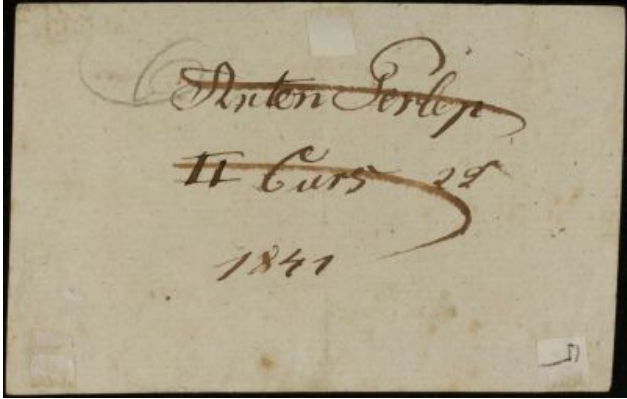 Anton Perlep
II Curs 22
1841